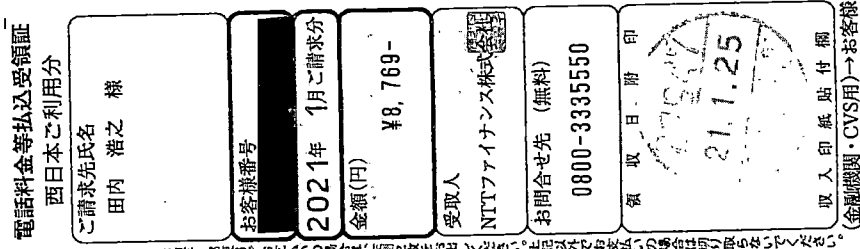 電話料金等払込受領証
西日本ご利用分
ご請求先氏名
田内 浩之 様
お客様番号
2021年 1月ご請求分
金額(円)
¥8,769-
受取人
NTTファイナンス株式会社
お問合せ先 (無料)
0800-3335550
領収日附印
21.1.25
収入印紙貼付欄
(金融機関・CVS用)→お客様